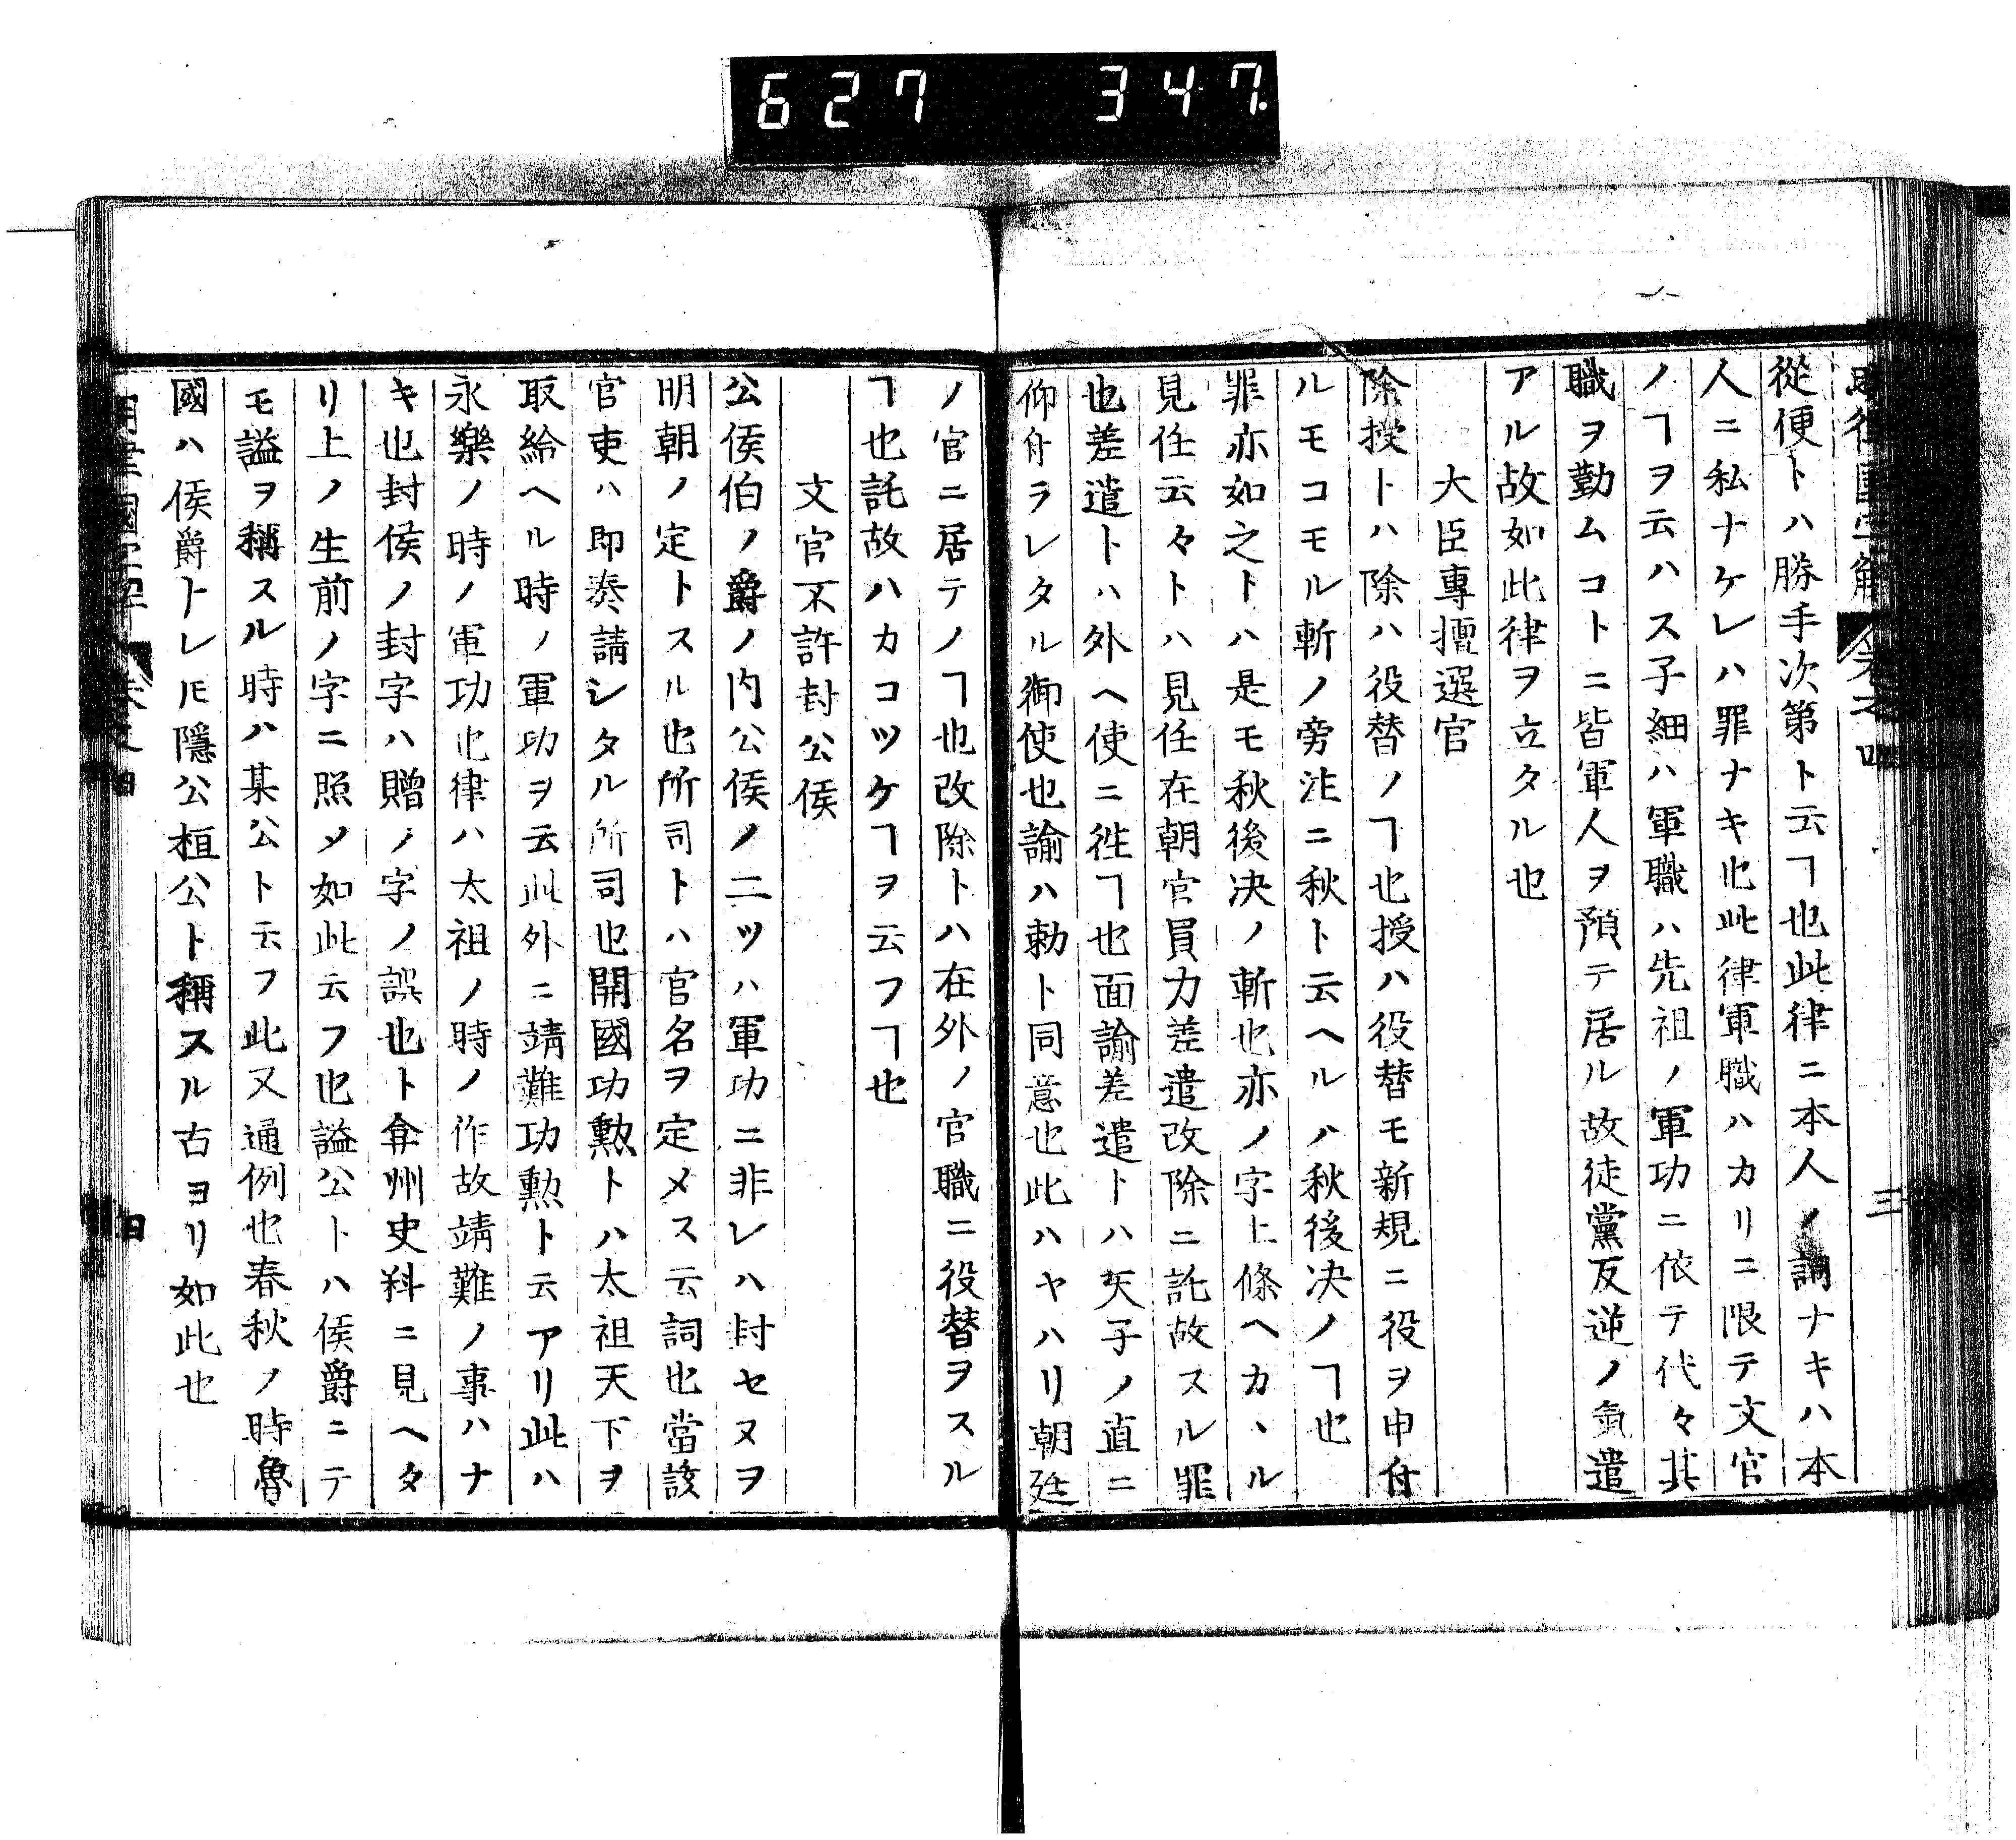 627 347
從便トハ勝手次第ト云ヿ也此律ニ本人ノ謂ナキハ本
人ニ私ナケレハ罪ナキ也此律軍職ハカリニ限テ文官
ノヿヲ云ハス子細ハ軍職ハ先祖ノ軍功ニ依テ代々其
職ヲ勤ムコトニ皆軍人ヲ預テ居ル故徒黨反逆ノ氣遣
アル故如此律ヲ立タル也
大臣專擅選官
除授トハ除ハ役替ノヿ也授ハ役替モ新規ニ役ヲ申付
ルモコモル斬ノ旁注ニ秋ト云ヘルハ秋後决ノヿ也
罪亦如之トハ是モ秋後决ノ斬也亦ノ字上條ヘカヽル
見任云々トハ見任在朝官員力差遣改除ニ託故スル罪
也差遣トハ外ヘ使ニ徃ヿ也面諭差遣トハ天子ノ直ニ
仰付ラレタル御使也諭ハ勅ト同意也此ハヤハリ朝廷
ノ官ニ居テノヿ也改除トハ在外ノ官職ニ役替ヲスル
ヿ也託故ハカコツケヿヲ云フヿ也
文官不許封公侯
公侯伯ノ爵ノ内公侯ノ二ツハ軍功ニ非レハ封セヌヲ
明朝ノ定トスル也所司トハ官名ヲ定メス云詞也當該
官吏ハ即奏請シタル所司也開國功勲トハ太祖天下ヲ
取給ヘル時ノ軍功ヲ云此外ニ靖難功勲ト云アリ此ハ
永樂ノ時ノ軍功也律ハ太祖ノ時ノ作故靖難ノ事ハナ
キ也封侯ノ封字ハ贈ノ字ノ誤也ト弇州史料ニ見ヘタ
リ上ノ生前ノ字ニ照メ如此云フ也謚公トハ侯爵ニテ
モ謚ヲ稱スル時ハ某公ト云フ此又通例也春秋ノ時魯
國ハ侯爵トレ𪜈隱公桓公ト稱スル古ヨリ如此也